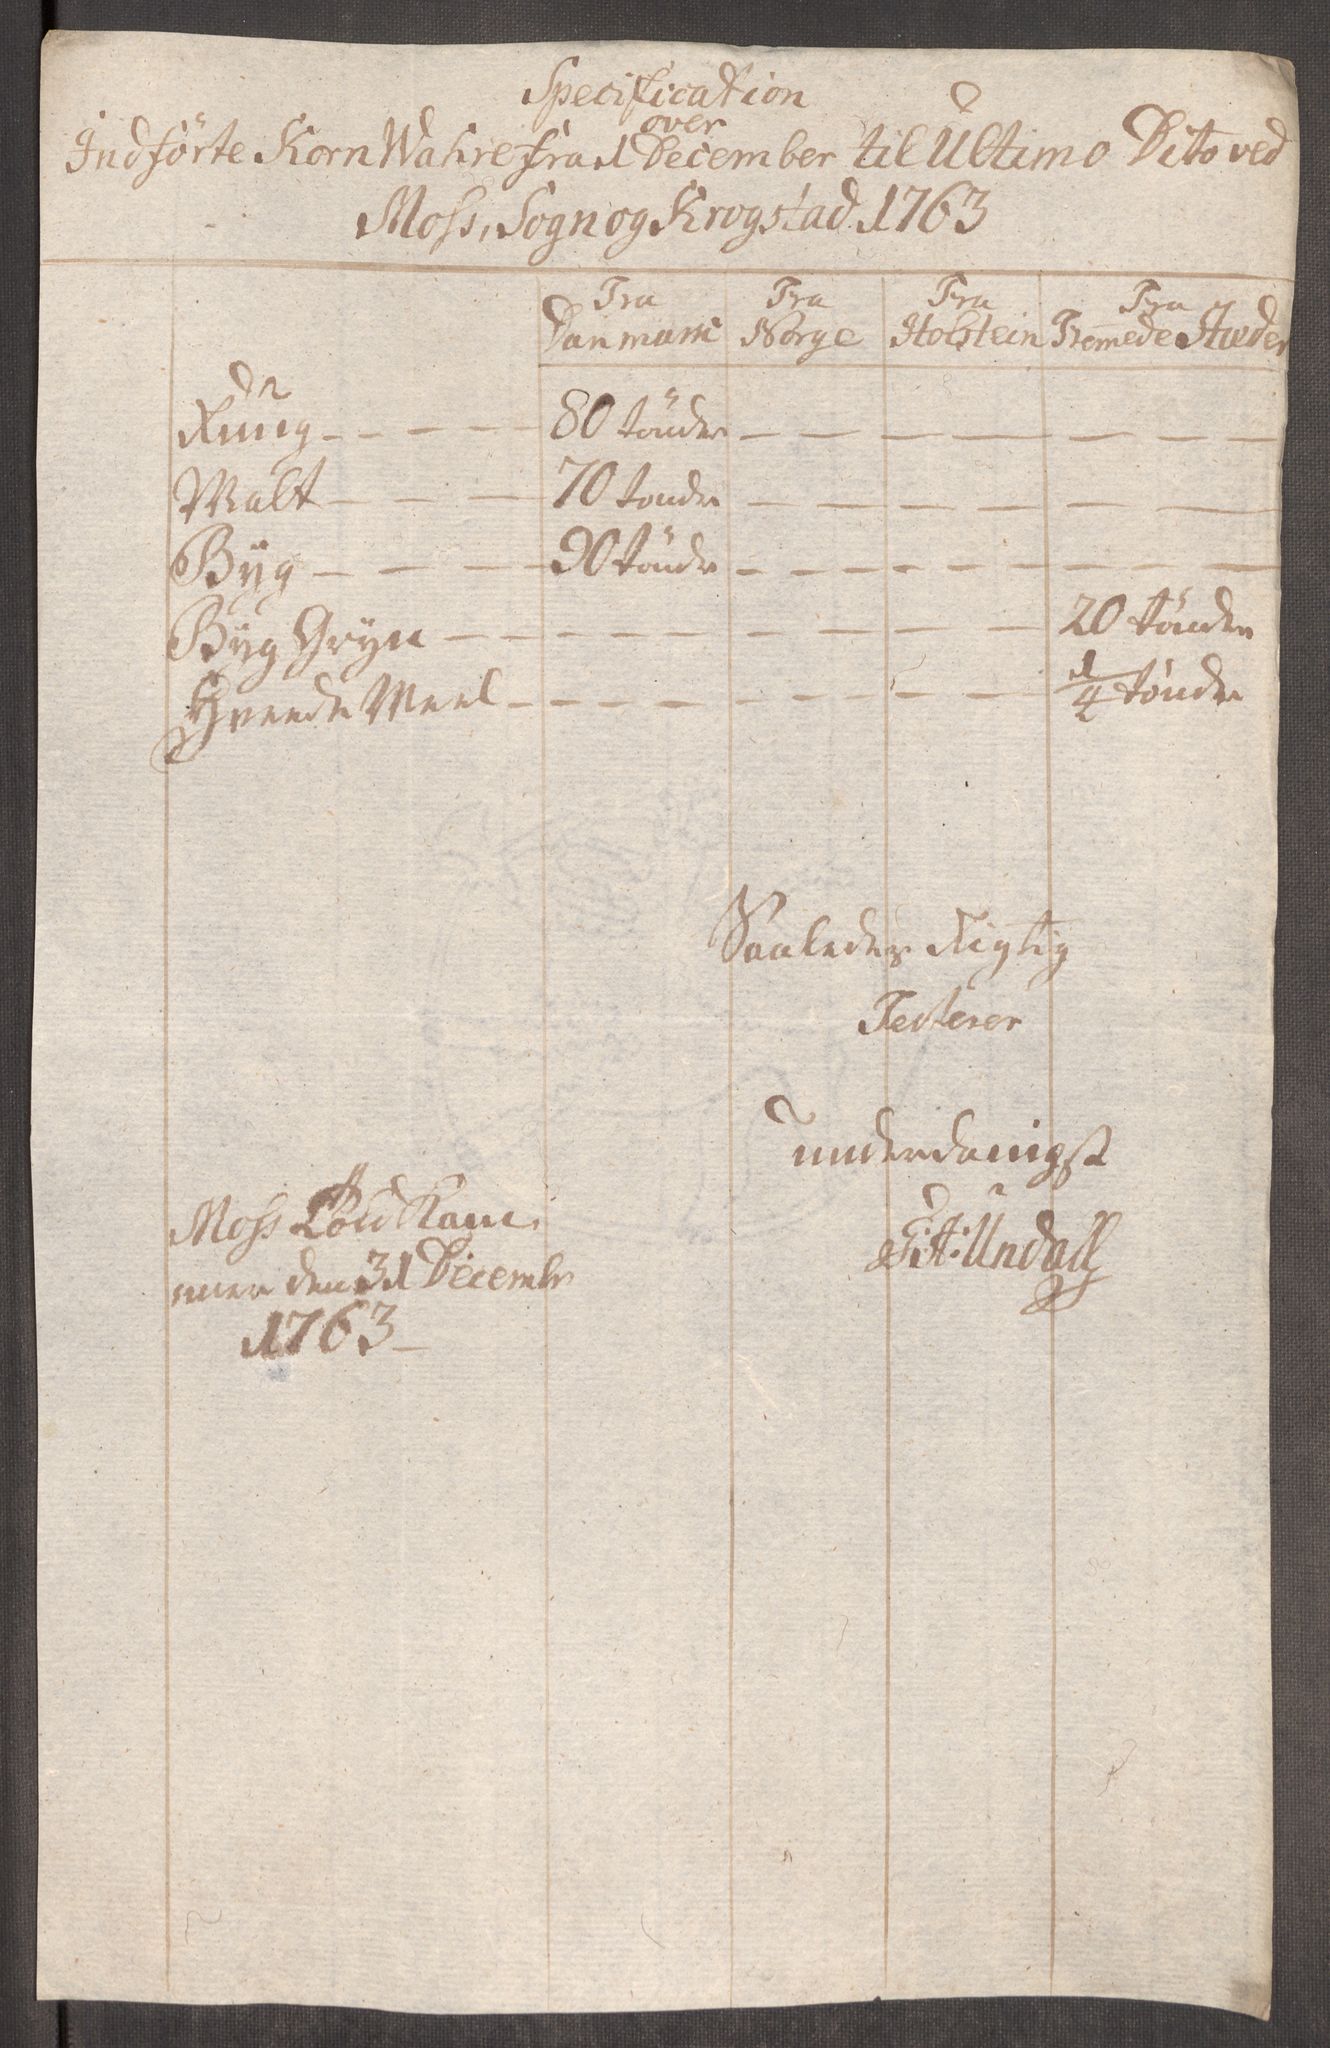 Specification
over
Indförte Korn Wahre fra 1 December til Ultimo Dito ved
Moss, Sogn og Krogstad 1763
Fra Danmark Fra Norge Fra Holstein Fra Fremmede Stæder
Rüug - - - - 80 tönder - - - - - - - -
Malt - - - 70 tondr - - - - - - - -
Byg - - - - 90 töndr - - - - - - - -
Byg Gryn - - - - - - - - - 20 tönder
Hveede Meel - - - - - - - - 1/4 tönder
Saaledes Rigtig
Testerer
underdanigst
Moss Told Kam
mer den 31 Decembr
1763